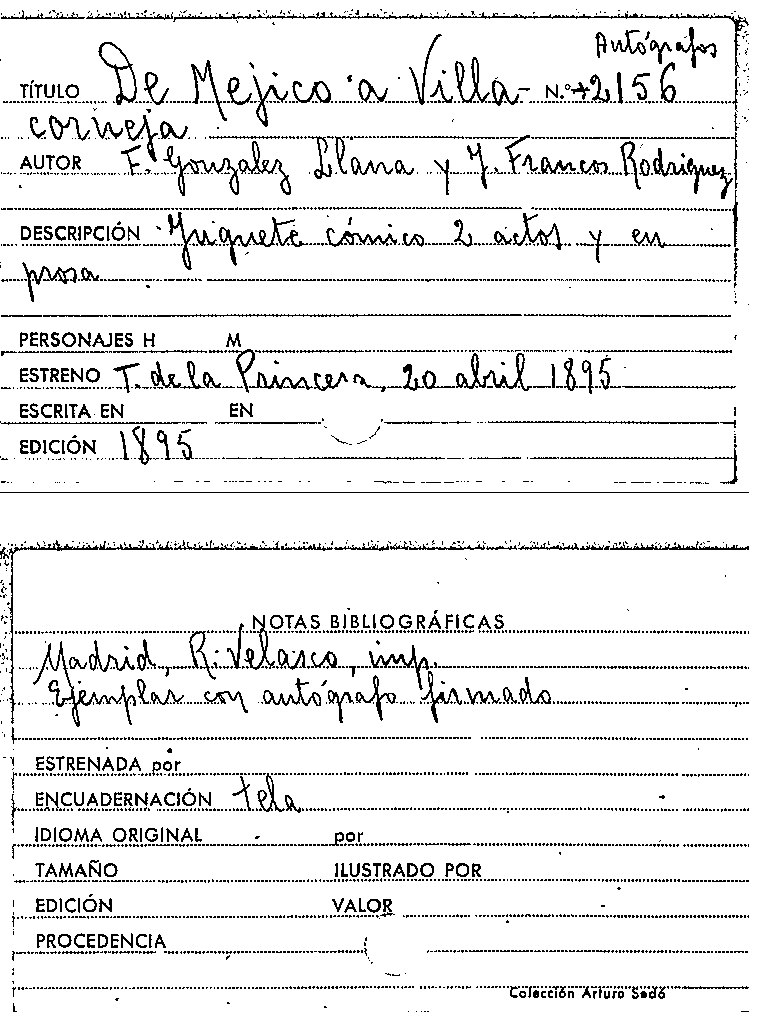 Autógrafos
TÍTULO De Mejico a Villa- N.º 2156
corneja
AUTOR F. Gonzalez Llana y J. Francos Rodriguez
DESCRIPCIÓN Juguete cómico 2 actos y en
prosa
PERSONAJES H M
ESTRENO T. de la Princesa, 20 abril 1895
ESCRITA EN EN
EDICIÓN 1895
NOTAS BIBLIOGRÁFICAS
Madrid, R. Velasco, imp.
Ejemplar con autógrafo firmado
ESTRENADA por
ENCUADERNACIÓN tela
IDIOMA ORIGINAL por
TAMAÑO ILUSTRADO POR
EDICIÓN VALOR
PROCEDENCIA
Colección Arturo Sedó